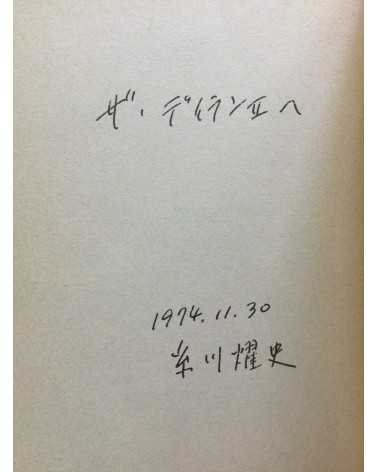 ザ・ディランⅡへ
1974.11.30
糸川燿史